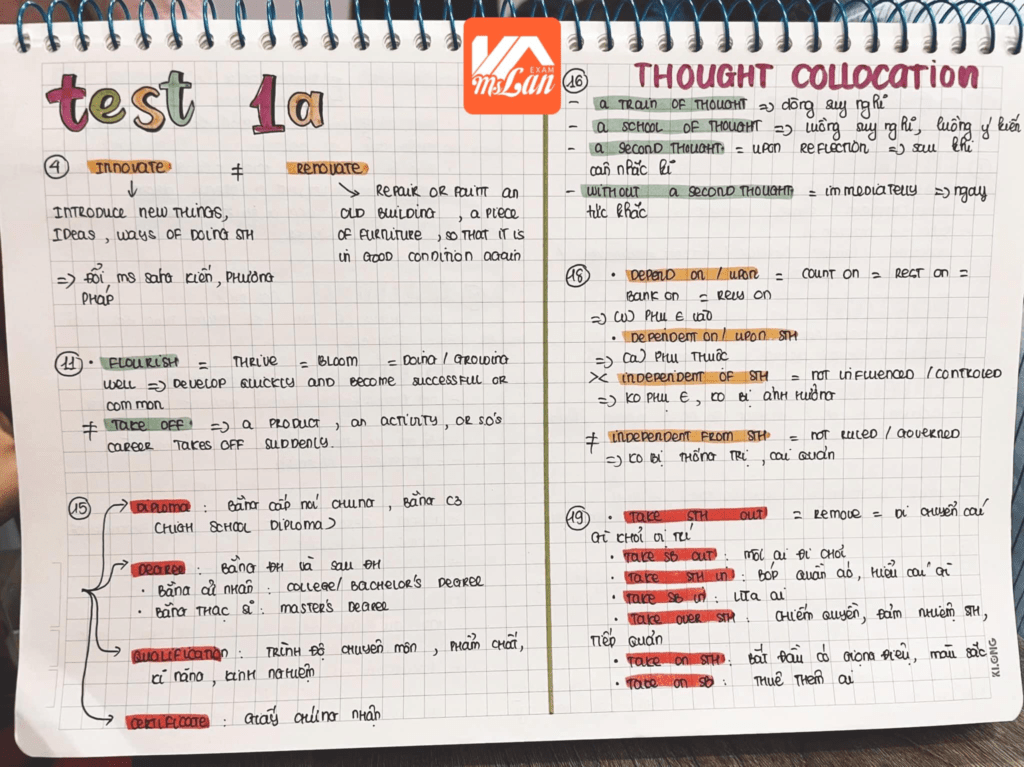 EXAM
MsLan
test 1a
④ INNOVATE ≠ RENOVATE
↓ ↘ REPAIR OR PAINT AN
INTRODUCE NEW THINGS, OLD BUILDING, A PIECE
IDEAS, WAYS OF DOING STH OF FURNITURE, SO THAT IT IS
IN GOOD CONDITION AGAIN
=> ĐỔI MS SÁNG KIẾN, PHƯƠNG
PHÁP
⑪ • FLOURISH = THRIVE = BLOOM = DOING / GROWING
WELL => DEVELOP QUICKLY AND BECOME SUCCESSFUL OR
COMMON.
≠ TAKE OFF => A PRODUCT, AN ACTIVITY, OR SO'S
CAREER TAKES OFF SUDDENLY.
⑮ DIPLOMA : BẰNG CẤP NÓI CHUNG, BẰNG C3
(HIGH SCHOOL DIPLOMA)
DEGREE : BẰNG ĐH VÀ SAU ĐH
• BẰNG CỬ NHÂN : COLLEGE/ BACHELOR'S DEGREE
• BẰNG THẠC SĨ : MASTER'S DEGREE
QUALIFICATION : TRÌNH ĐỘ CHUYÊN MÔN, PHẨM CHẤT,
KĨ NĂNG, KINH NGHIỆM
CERTIFICATE : GIẤY CHỨNG NHẬN
⑯ THOUGHT COLLOCATION
- A TRAIN OF THOUGHT => dòng suy nghĩ
- A SCHOOL OF THOUGHT => luồng suy nghĩ, luồng ý kiến
- A SECOND THOUGHT = UPON REFLECTION => sau khi
cân nhắc kĩ
- WITHOUT A SECOND THOUGHT = immediatelly => ngay
tức khắc
⑱ • DEPEND ON / UPON = COUNT ON = REST ON =
BANK ON = RELY ON
=> (V) PHỤ ∈ VÀO
• DEPENDENT ON / UPON STH
=> (A) PHỤ THUỘC
>< INDEPENDENT OF STH = NOT INFLUENCED / CONTROLED
=> KO PHỤ ∈, KO BỊ ẢNH HƯỞNG
≠ INDEPENDENT FROM STH = NOT RULED / GOVERNED
=> KO BỊ THỐNG TRỊ, CAI QUẢN
⑲ • TAKE STH OUT = REMOVE = DI CHUYỂN CÁI
GÌ KHỎI VỊ TRÍ
• TAKE SB OUT : MỜI AI ĐI CHƠI
• TAKE STH IN : BÓP QUẦN ÁO, HIỂU CÁI GÌ
• TAKE SB IN : LỪA AI
• TAKE OVER STH : CHIẾM QUYỀN, ĐẢM NHIỆM STH,
TIẾP QUẢN
• TAKE ON STH : BẮT ĐẦU CÓ GIỌNG ĐIỆU, MÀU SẮC
• TAKE ON SB : THUÊ THÊM AI
KLONG